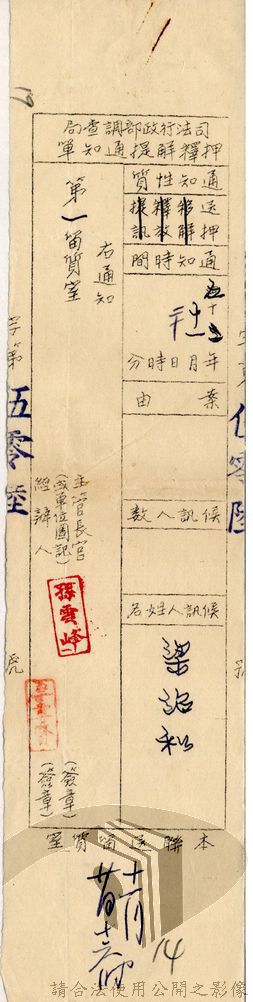 司法行政部調查局
押釋解提通知單
通知性質
送押
移解
釋放
提訊
通知時間
五十
十一
年月日時分
案由
候訊人數
候訊人姓名
右通知
第一留質室
主管長官
(或單位圖記)
經辦人
孫雲峰
(簽章)
(簽章)
本聯送留質室
字第
伍零陸
號
十一月
14
請合法使用公開之影像